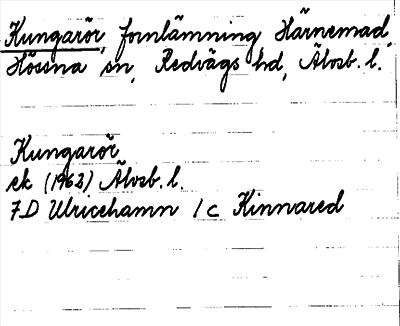 Kungarör, fornlämning Härnemad,
Hössna sn, Redvägs hd, Älvsb. l.
Kungarör
ek (1963) Älvsb. l.
7D Ulricehamn 1c Kinnared